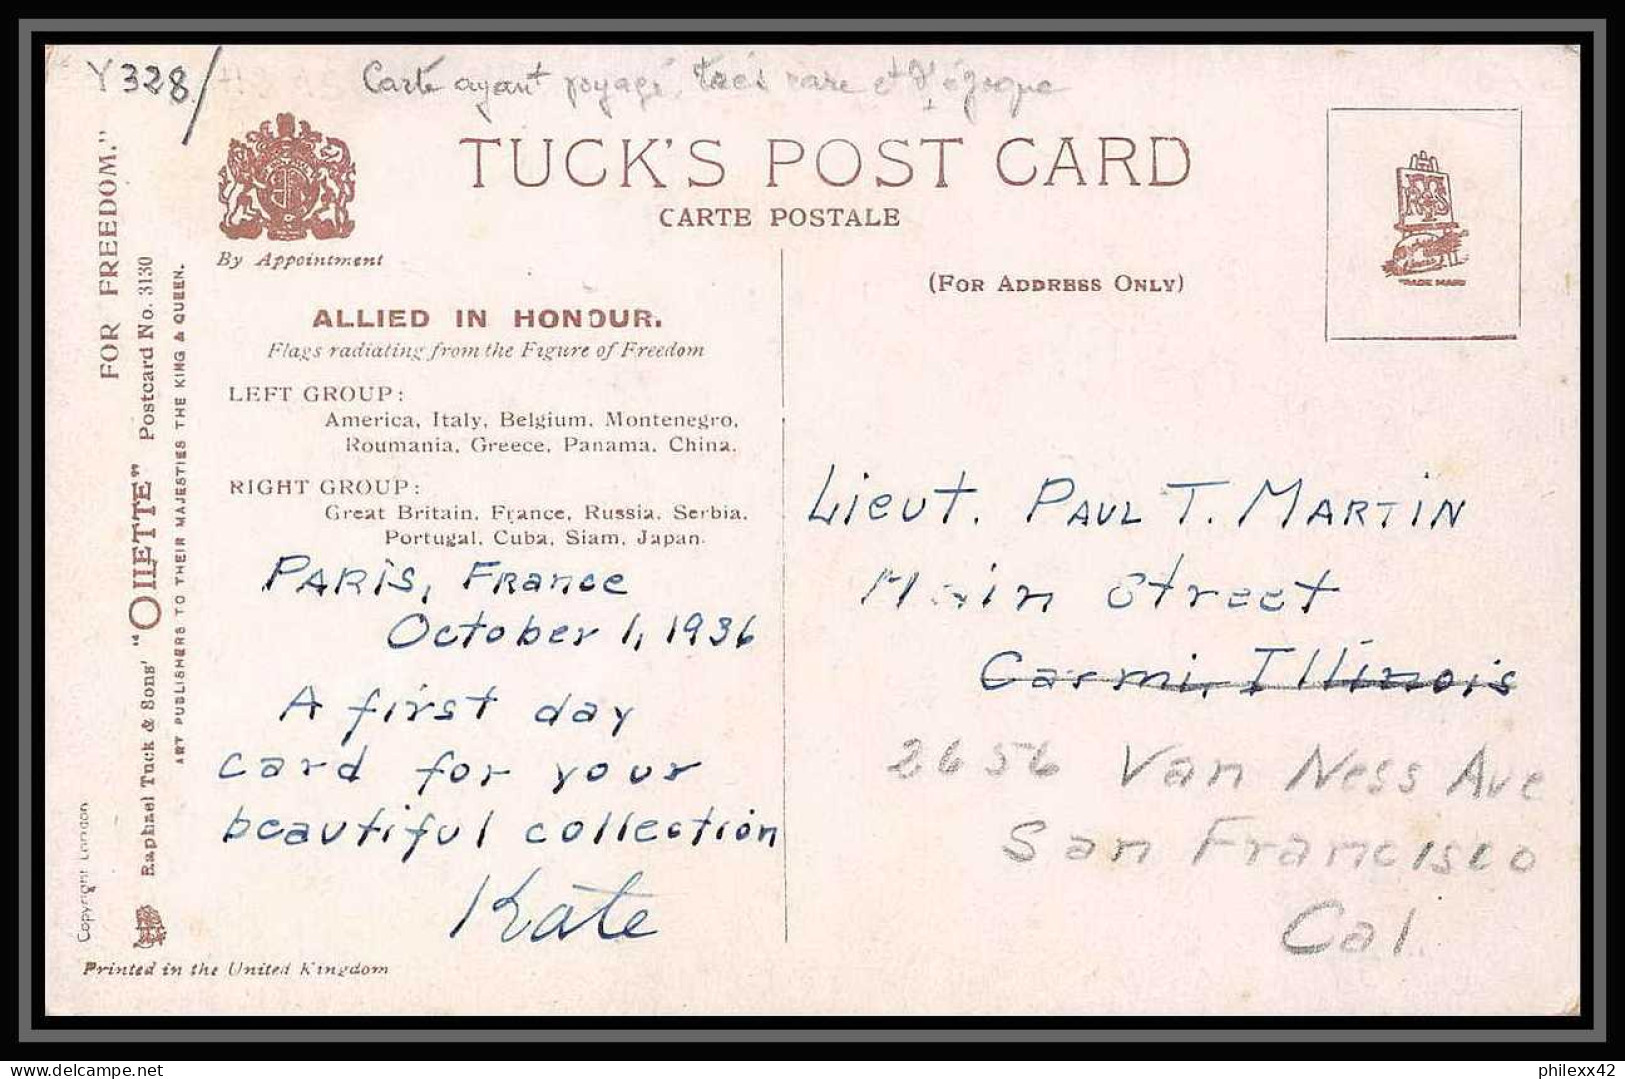 Y 328/
Carte ayant voyagé, très rare et d'époque
TUCK'S POST CARD
CARTE POSTALE
By Appointment
(FOR ADDRESS ONLY)
R T & S
TRADE MARK
ALLIED IN HONOUR.
Flags radiating from the Figure of Freedom
LEFT GROUP:
America, Italy, Belgium, Montenegro,
Roumania, Greece, Panama, China.
RIGHT GROUP:
Great Britain, France, Russia, Serbia,
Portugal, Cuba, Siam, Japan.
PARIS, France
October 1, 1936
A first day
card for your
beautiful collection
Kate
Lieut. PAUL T. MARTIN
Main Street
Carmi, Illinois
2656 Van Ness Ave
San Francisco
Cal.
FOR FREEDOM."
Raphael Tuck & Sons' "OILETTE" Postcard No. 3130
ART PUBLISHERS TO THEIR MAJESTIES THE KING & QUEEN.
Copyright London
Printed in the United Kingdom
delcampe.net
philexx42